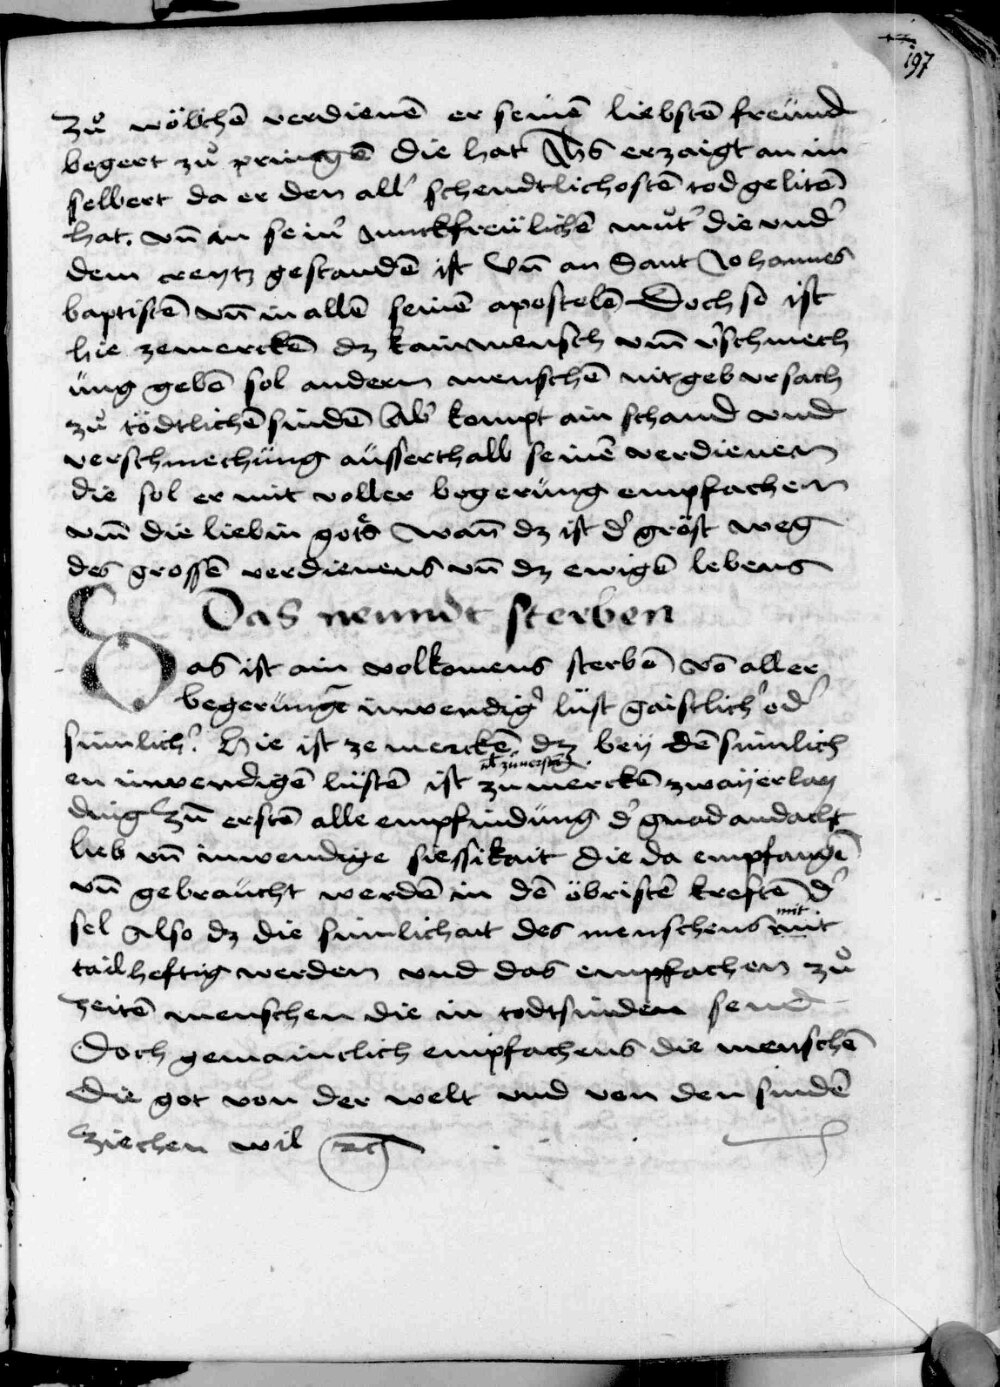 197
zuͦ wölchē verdienē er seinē liebstē freünd
begert zuͦ pringē die hat Jhs erzaigt an im
selbert da er den all' schendtlichostē tod gelitē
hat. vn̄ an sein' junckfreülichē muͦt' die vnd'
dem creytz gestandē ist Vn̄ an Sant Johannes
baptistē vn̄ in allē seinē apostelē Doch so ist
hie zemerckē dz kain mensch vm̄ v'schmech
üng gebē sol andern menschē nit geb vrsach
zuͦ tödtlichē sindē Ab' kompt ain schand vnd
verschmechüng aüsserthalb seinē verdienen
die sol er mit voller begerüng empfachen
vm̄ die lieb in gots wan̄ dz ist d' gröst weg
des grossē verdienens vn̄ dz ewigē lebens
Das neundt sterben
Das ist ain volkomens sterbē vō aller
begerüngē inwendig' lüst gaistlich' od'
sinlich'. Hie ist ze merckē dz bey dē sinlich
en inwendigē lüstē ist zu merckē zwayerlay
ding Zūn erstē alle empfindüng d' gnad andacht
lieb vn̄ inwendige siessikait die da empfangē
vn̄ gebraücht werdē in dē öbristē kreftē d'
sel Also dz die sinlichait des menschens mit
tailheftig werden vnd das empfachen zuͦ
zeitē menschen die in todtsinden send
Doch gemainclich empfachens die menschē
die got von der welt vnd von den sindē
ziechen wil etc